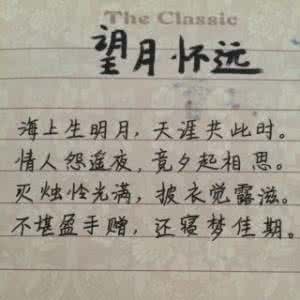 The Classic
望月怀远
海上生明月，天涯共此时。
情人怨遥夜，竟夕起相思。
灭烛怜光满，披衣觉露滋。
不堪盈手赠，还寝梦佳期。